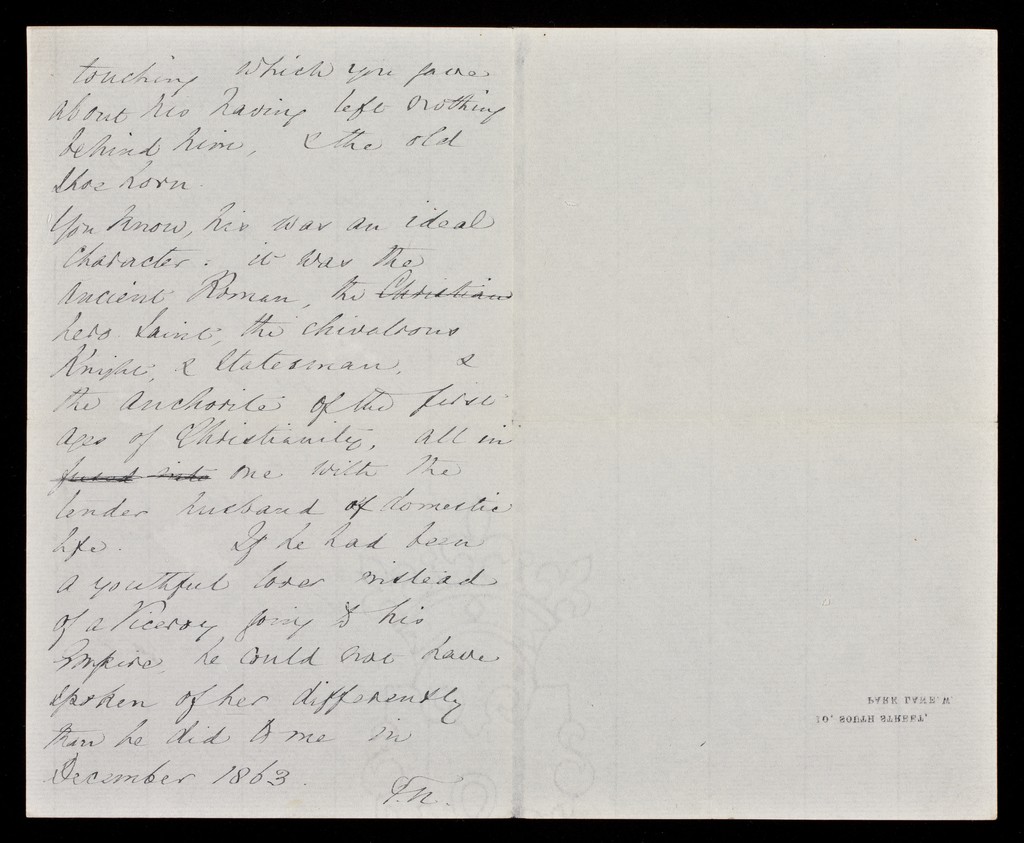 touching which you gave
about his having left nothing
behind him, & the old
Shoe horn.
You know, his was an ideal
character: it was the
ancient Roman, the Christian
hero Saint, the chivalrous
Knight, & Statesman, &
the anchorite of the first
ages of Christianity, all in
fused into one with the
tender husband of domestic
life. If he had been
a youthful lover instead
of a Viceroy going to his
Empire, he could not have
spoken of her differently
than he did to me in
December 1863.
F.N.
10, SOUTH STREET,
PARK LANE. W.